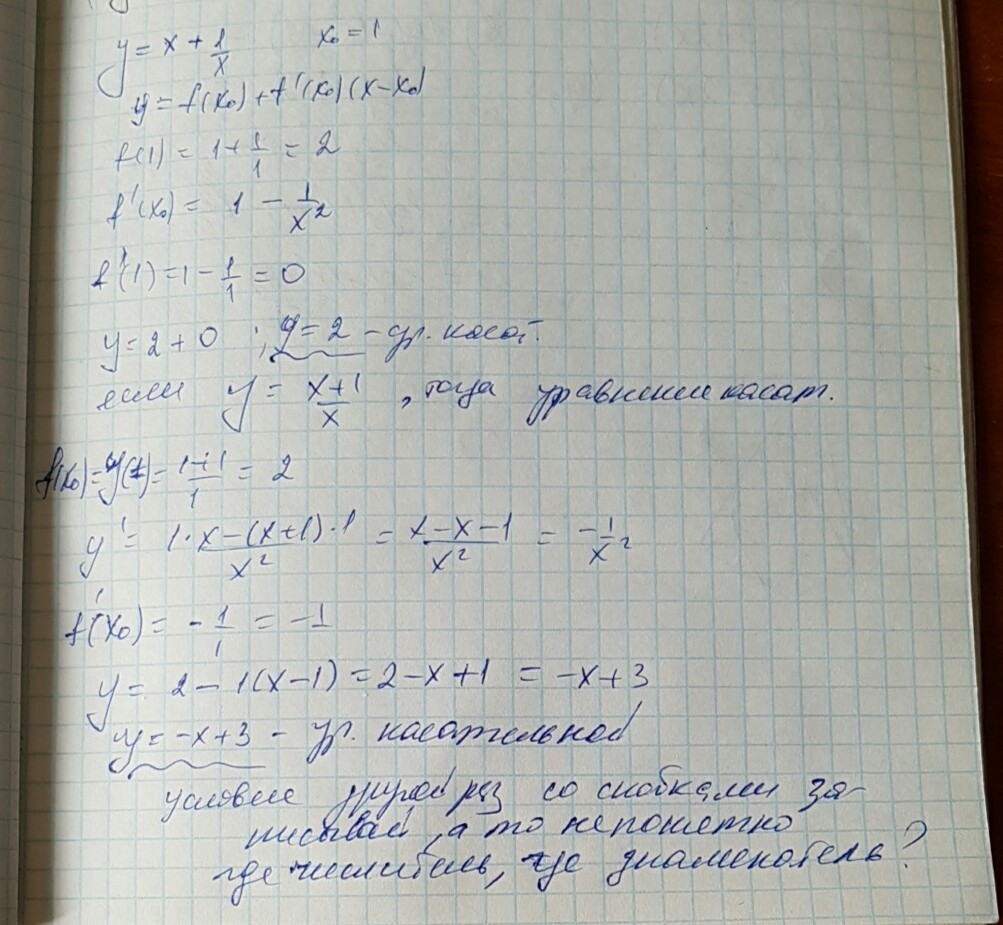 y = x + 1/x    x₀ = 1
y = f(x₀) + f'(x₀)(x-x₀)
f(1) = 1 + 1/1 = 2
f'(x₀) = 1 - 1/x²
f'(1) = 1 - 1/1 = 0
y = 2 + 0 ; y = 2 - ур. касат.
если y = (x+1)/x , тогда уравнение касат.
f(x₀) = y(1) = (1+1)/1 = 2
y' = (1·x-(x+1)·1)/x² = (x-x-1)/x² = -1/x²
f'(x₀) = -1/1 = -1
y = 2 - 1(x-1) = 2-x+1 = -x+3
y = -x+3 - ур. касательной
условие другой раз со скобками за-
писывай, а то непонятно
где числитель, где знаменатель?